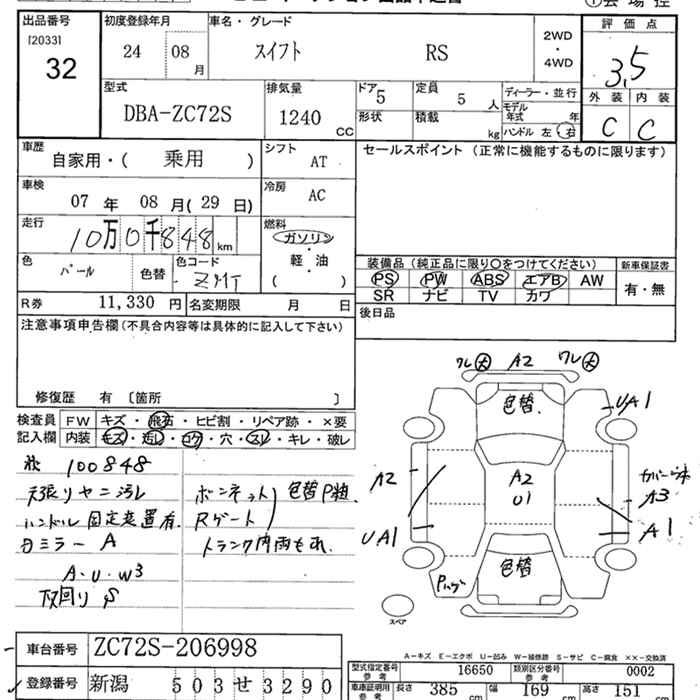 出品番号
[2033]
32
初度登録年月
24 08 月
車名・グレード
スイフト RS
2WD
・
4WD
評価点
3.5
外装 内装
C C
型式
DBA-ZC72S
排気量
1240 CC
ドア 5
形状
定員 5 人
積載 kg
ディーラー・並行
モデル年式 年
ハンドル 左・右
車歴
自家用・( 乗用 )
シフト
AT
セールスポイント (正常に機能するものに限ります)
車検
07 年 08 月( 29 日)
冷房
AC
走行
10万0千848 km
燃料
ガソリン
・
軽・油
( )
色
パール
色替
色コード
ZMT
装備品 (純正品に限り○をつけてください)
PS PW ABS エアB AW
SR ナビ TV カワ
新車保証書
有・無
R券 11,330 円
名変期限 月 日
後日品
注意事項申告欄 (不具合内容等は具体的に記入して下さい)
修復歴 有 〔箇所 〕
検査員
記入欄
FW キズ・飛石・ヒビ割・リペア跡・×要
内装 キズ・汚し・コゲ・穴・スレ・キレ・破レ
100848
天張りヤニ汚レ
ハンドル固定装置有
カミラー A
A・U・W3
下回り S
ボンネット
Rゲート
色替P粗
トランク内雨もれ
ワレ 大 A2 ワレ 大
色替
UA1
A2
A2
U1
カバー
A3
UA1
A1
色替
スペア
A-キズ E-エクボ U-凹み W-補修跡 S-サビ C-腐食 ××-交換済
車台番号 ZC72S-206998
登録番号 新潟 503 せ 3290
型式指定番号 参考 16650
類別区分番号 参考 0002
車庫証明用 参考 長さ 385 cm 幅 169 cm 高さ 151 cm